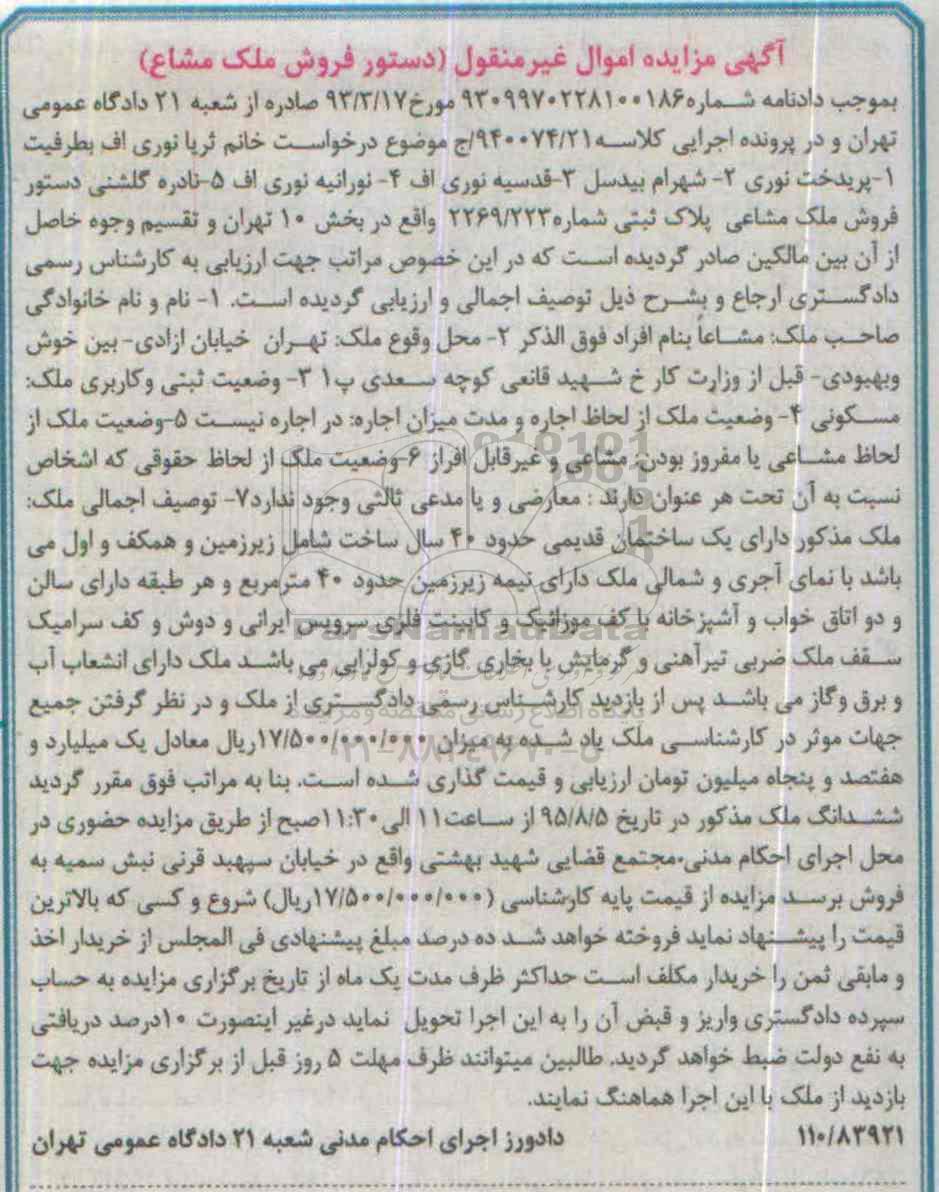 آگهی مزایده اموال غیرمنقول (دستور فروش ملک مشاع)
بموجب دادنامه شماره۹۳۰۹۹۷۰۲۲۸۱۰۰۱۸۶ مورخ۹۳/۳/۱۷ صادره از شعبه ۲۱ دادگاه عمومی
تهران و در پرونده اجرایی کلاسه۹۴۰۰۷۴/۲۱/ج موضوع درخواست خانم ثریا نوری اف بطرفیت
۱-پریدخت نوری ۲- شهرام بیدسل ۳-قدسیه نوری اف ۴- نورانیه نوری اف ۵-نادره گلشنی دستور
فروش ملک مشاعی پلاک ثبتی شماره۲۲۶۹/۲۲۳ واقع در بخش ۱۰ تهران و تقسیم وجوه خاصل
از آن بین مالکین صادر گردیده است که در این خصوص مراتب جهت ارزیابی به کارشناس رسمی
دادگستری ارجاع و بشرح ذیل توصیف اجمالی و ارزیابی گردیده است. ۱- نام و نام خانوادگی
صاحب ملک: مشاعاً بنام افراد فوق الذکر ۲- محل وقوع ملک: تهران خیابان ازادی- بین خوش
وبهبودی- قبل از وزارت کار خ شهید قانعی کوچه سعدی پ۱ ۳- وضعیت ثبتی وکاربری ملک:
مسکونی ۴- وضعیت ملک از لحاظ اجاره و مدت میزان اجاره: در اجاره نیست ۵-وضعیت ملک از
لحاظ مشاعی یا مفروز بودن: مشاعی و غیرقابل افراز ۶-وضعیت ملک از لحاظ حقوقی که اشخاص
نسبت به آن تحت هر عنوان دارند : معارضی و یا مدعی ثالثی وجود ندارد۷- توصیف اجمالی ملک:
ملک مذکور دارای یک ساختمان قدیمی حدود ۴۰ سال ساخت شامل زیرزمین و همکف و اول می
باشد با نمای آجری و شمالی ملک دارای نیمه زیرزمین حدود ۴۰ مترمربع و هر طبقه دارای سالن
و دو اتاق خواب و آشپزخانه با کف موزائیک و کابینت فلزی سرویس ایرانی و دوش و کف سرامیک
سقف ملک ضربی تیرآهنی و گرمایش با بخاری گازی و کولرابی می باشد ملک دارای انشعاب آب
و برق وگاز می باشد پس از بازدید کارشناس رسمی دادگستری از ملک و در نظر گرفتن جمیع
جهات موثر در کارشناسی ملک یاد شده به میزان ۱۷/۵۰۰/۰۰۰/۰۰۰ریال معادل یک میلیارد و
هفتصد و پنجاه میلیون تومان ارزیابی و قیمت گذاری شده است. بنا به مراتب فوق مقرر گردید
ششدانگ ملک مذکور در تاریخ ۹۵/۸/۵ از ساعت۱۱ الی۱۱:۳۰صبح از طریق مزایده حضوری در
محل اجرای احکام مدنی.مجتمع قضایی شهید بهشتی واقع در خیابان سپهبد قرنی نبش سمیه به
فروش برسد مزایده از قیمت پایه کارشناسی (۱۷/۵۰۰/۰۰۰/۰۰۰ریال) شروع و کسی که بالاترین
قیمت را پیشنهاد نماید فروخته خواهد شد ده درصد مبلغ پیشنهادی فی المجلس از خریدار اخذ
و مابقی ثمن را خریدار مکلف است حداکثر ظرف مدت یک ماه از تاریخ برگزاری مزایده به حساب
سپرده دادگستری واریز و قبض آن را به این اجرا تحویل نماید درغیر اینصورت ۱۰درصد دریافتی
به نفع دولت ضبط خواهد گردید. طالبین میتوانند ظرف مهلت ۵ روز قبل از برگزاری مزایده جهت
بازدید از ملک با این اجرا هماهنگ نمایند.
۱۱۰/۸۳۹۲۱ دادورز اجرای احکام مدنی شعبه ۲۱ دادگاه عمومی تهران
ParsNamadData